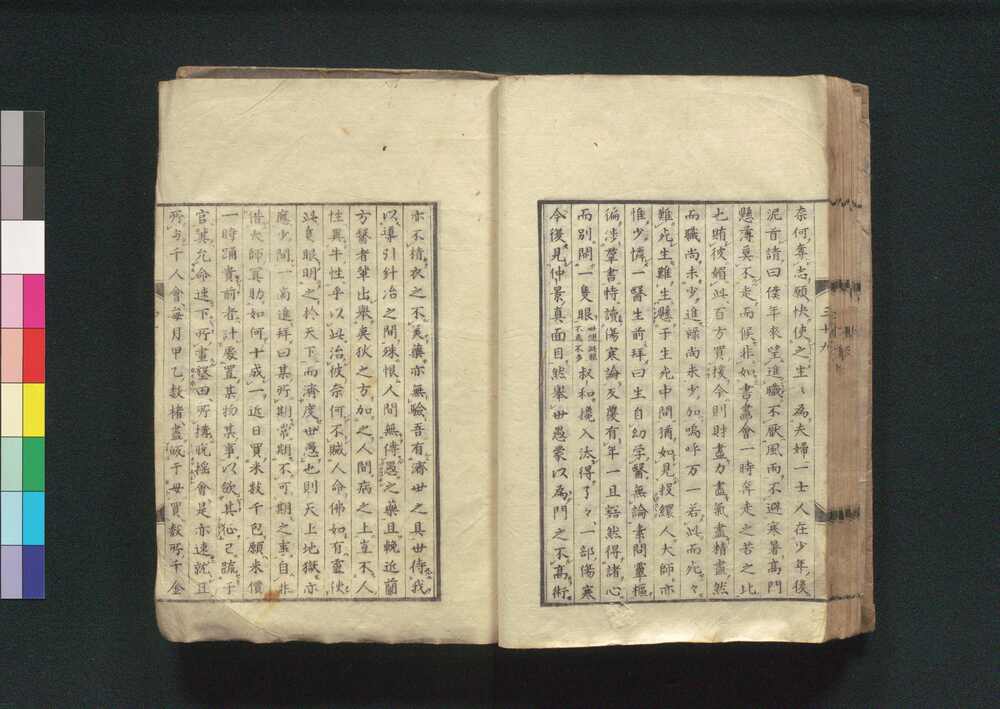 奈何奪志願快使之生々為夫婦一士人在少年後
泥首請曰僕年來望進職不厭風雨不避寒暑高門
懸薄莫不走而候非如書畫會一時奔走之若之比
也賄彼媚此百方買後今則財盡力盡氣盡精盡然
而職尚未少進祿尚未少加嗚呼万一若此而死々
難死生難生懸于生死中間猶如見投繯人大師亦
惟少憐一醫生前拜曰生自幼学醫無論素問靈樞
徧涉羣書特讀傷寒論反覆有年一旦豁然得諸心
而別開一隻眼叔和攙入汰得了々一部傷寒
今後見仲景真面目然舉世愚蒙以為門之不高術
亦不精衣之不美藥亦無驗吾有濟世之具世待我
以導引針治之間殊恨人間無傳愚之藥且輓近蘭
方醫者輩出舉夷狄之方加之人間病之上豈不人
性異牛性乎以此治彼奈何不賊人命佛如有靈使
此隻眼明之於天下而濟度世愚也則天上地獄亦
應少間一商進拜曰某所期常期不可期之事自非
借大師冥助如何十成一近日買米数千包願米價
一時踊貴前者計處置某物某事以飲其徒已疏于
官冀允命速下所畫堅田所搆晩搖會是亦速就且
所与千人會每月甲乙数楮盡 于毋買数所千金
三十九